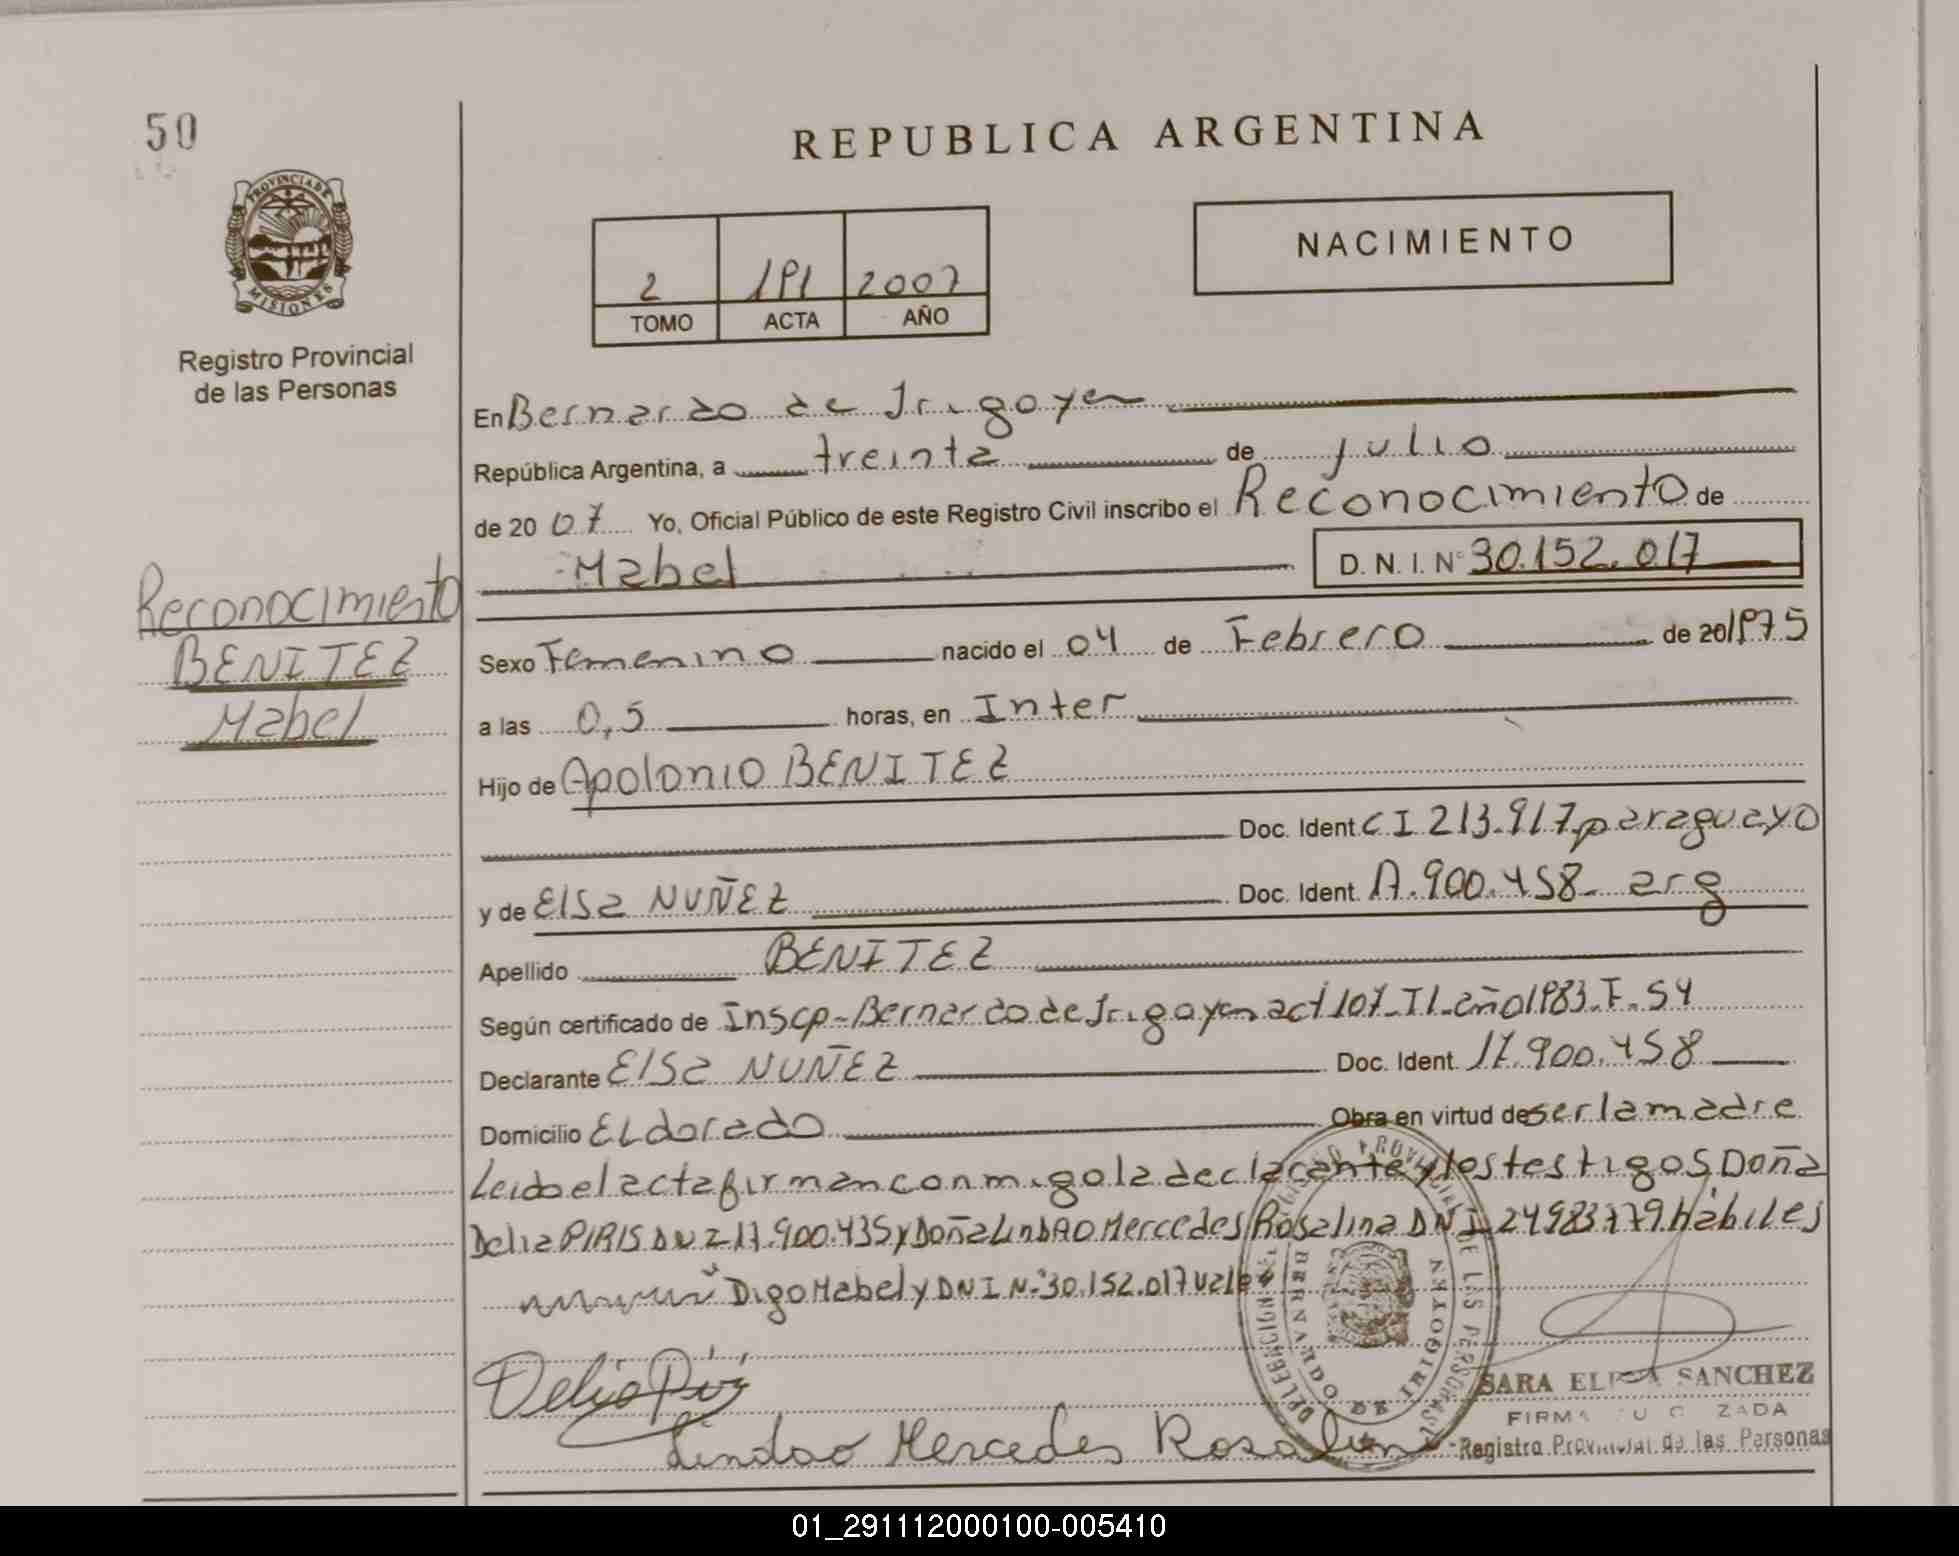 50
REPUBLICA ARGENTINA
PROVINCIA DE
MISIONES
Registro Provincial
de las Personas
2 191 2007
TOMO ACTA AÑO
NACIMIENTO
En Bernardo de Irigoyen
República Argentina, a treinta de julio
de 2007 Yo, Oficial Público de este Registro Civil inscribo el Reconocimiento de
Mabel D. N. I. Nº 30.152.017
Reconocimiento
BENITEZ
Mabel
Sexo Femenino nacido el 04 de Febrero de 20 1975
a las 0,5 horas, en Inter
Hijo de Apolonio BENITEZ
Doc. Ident. C I 213.917 paraguayo
y de Elsa NUÑEZ Doc. Ident. 17.900.458 arg
Apellido BENITEZ
Según certificado de Inscp-Bernardo de Irigoyen act 107-T1-año 1983.F.54
Declarante Elsa NUÑEZ Doc. Ident. 17.900.458
Domicilio ELdorado Obra en virtud de ser la madre
Leido el acta firman conmigo la declarante y los testigos Doña
Delia PIRIS DNI 17.900.435 y Doña LindAO Mercedes Rosalina DNI 24983779 Hábiles
"Digo Mabel y DNI N:30.152.017 vale"
REGISTRO PROVINCIAL DE LAS PERSONAS
DELEGACION
BERNARDO DE IRIGOYEN
Delia Piris
Lindao Mercedes Rosalina
SARA ELISA SANCHEZ
FIRMA AUTORIZADA
Registro Provincial de las Personas
01_291112000100-005410